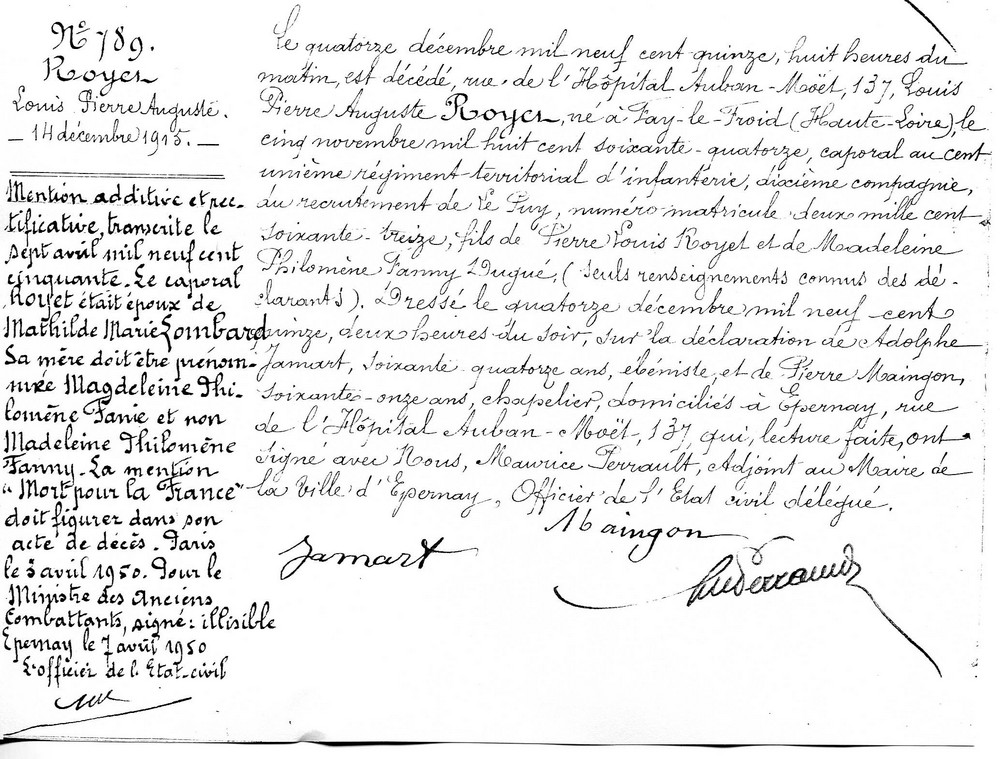 N° 789.
Royet
Louis Pierre Auguste.
14 décembre 1915.
Mention additive et rec-
tificative, transcrite le
sept avril mil neuf cent
cinquante. Le caporal
Royet était époux de
Mathilde Marie Lombard
Sa mère doit être prénom-
mée Magdeleine Phi-
lomène Fanie et non
Madeleine Philomène
Fanny. La mention
"Mort pour la France"
doit figurer dans son
acte de décès. Paris
le 3 avril 1950. Pour le
Ministre des Anciens
Combattants, signé : illisible
Epernay le 7 avril 1950
L'officier de l'Etat-civil
Le quatorze décembre mil neuf cent quinze, huit heures du
matin, est décédé, rue de l'Hôpital Auban-Moët, 137, Louis
Pierre Auguste Royet, né à Fay-le-Froid (Haute-Loire), le
cinq novembre mil huit cent soixante-quatorze, caporal au cent
unième régiment territorial d'infanterie, dixième compagnie,
du recrutement de Le Puy, numéro matricule deux mille cent
soixante-treize, fils de Pierre Louis Royet et de Madeleine
Philomène Fanny Dugué, (seuls renseignements connus des dé-
clarants). Dressé le quatorze décembre mil neuf cent
quinze, deux heures du soir, sur la déclaration de Adolphe
Jamart, soixante quatorze ans, ébéniste, et de Pierre Maingon,
soixante-onze ans, chapelier, domiciliés à Epernay, rue
de l'Hôpital Auban-Moët, 137, qui, lecture faite, ont
signé avec Nous, Maurice Perrault, Adjoint au Maire de
la Ville d'Epernay, Officier de l'Etat civil délégué.
Maingon
Jamart